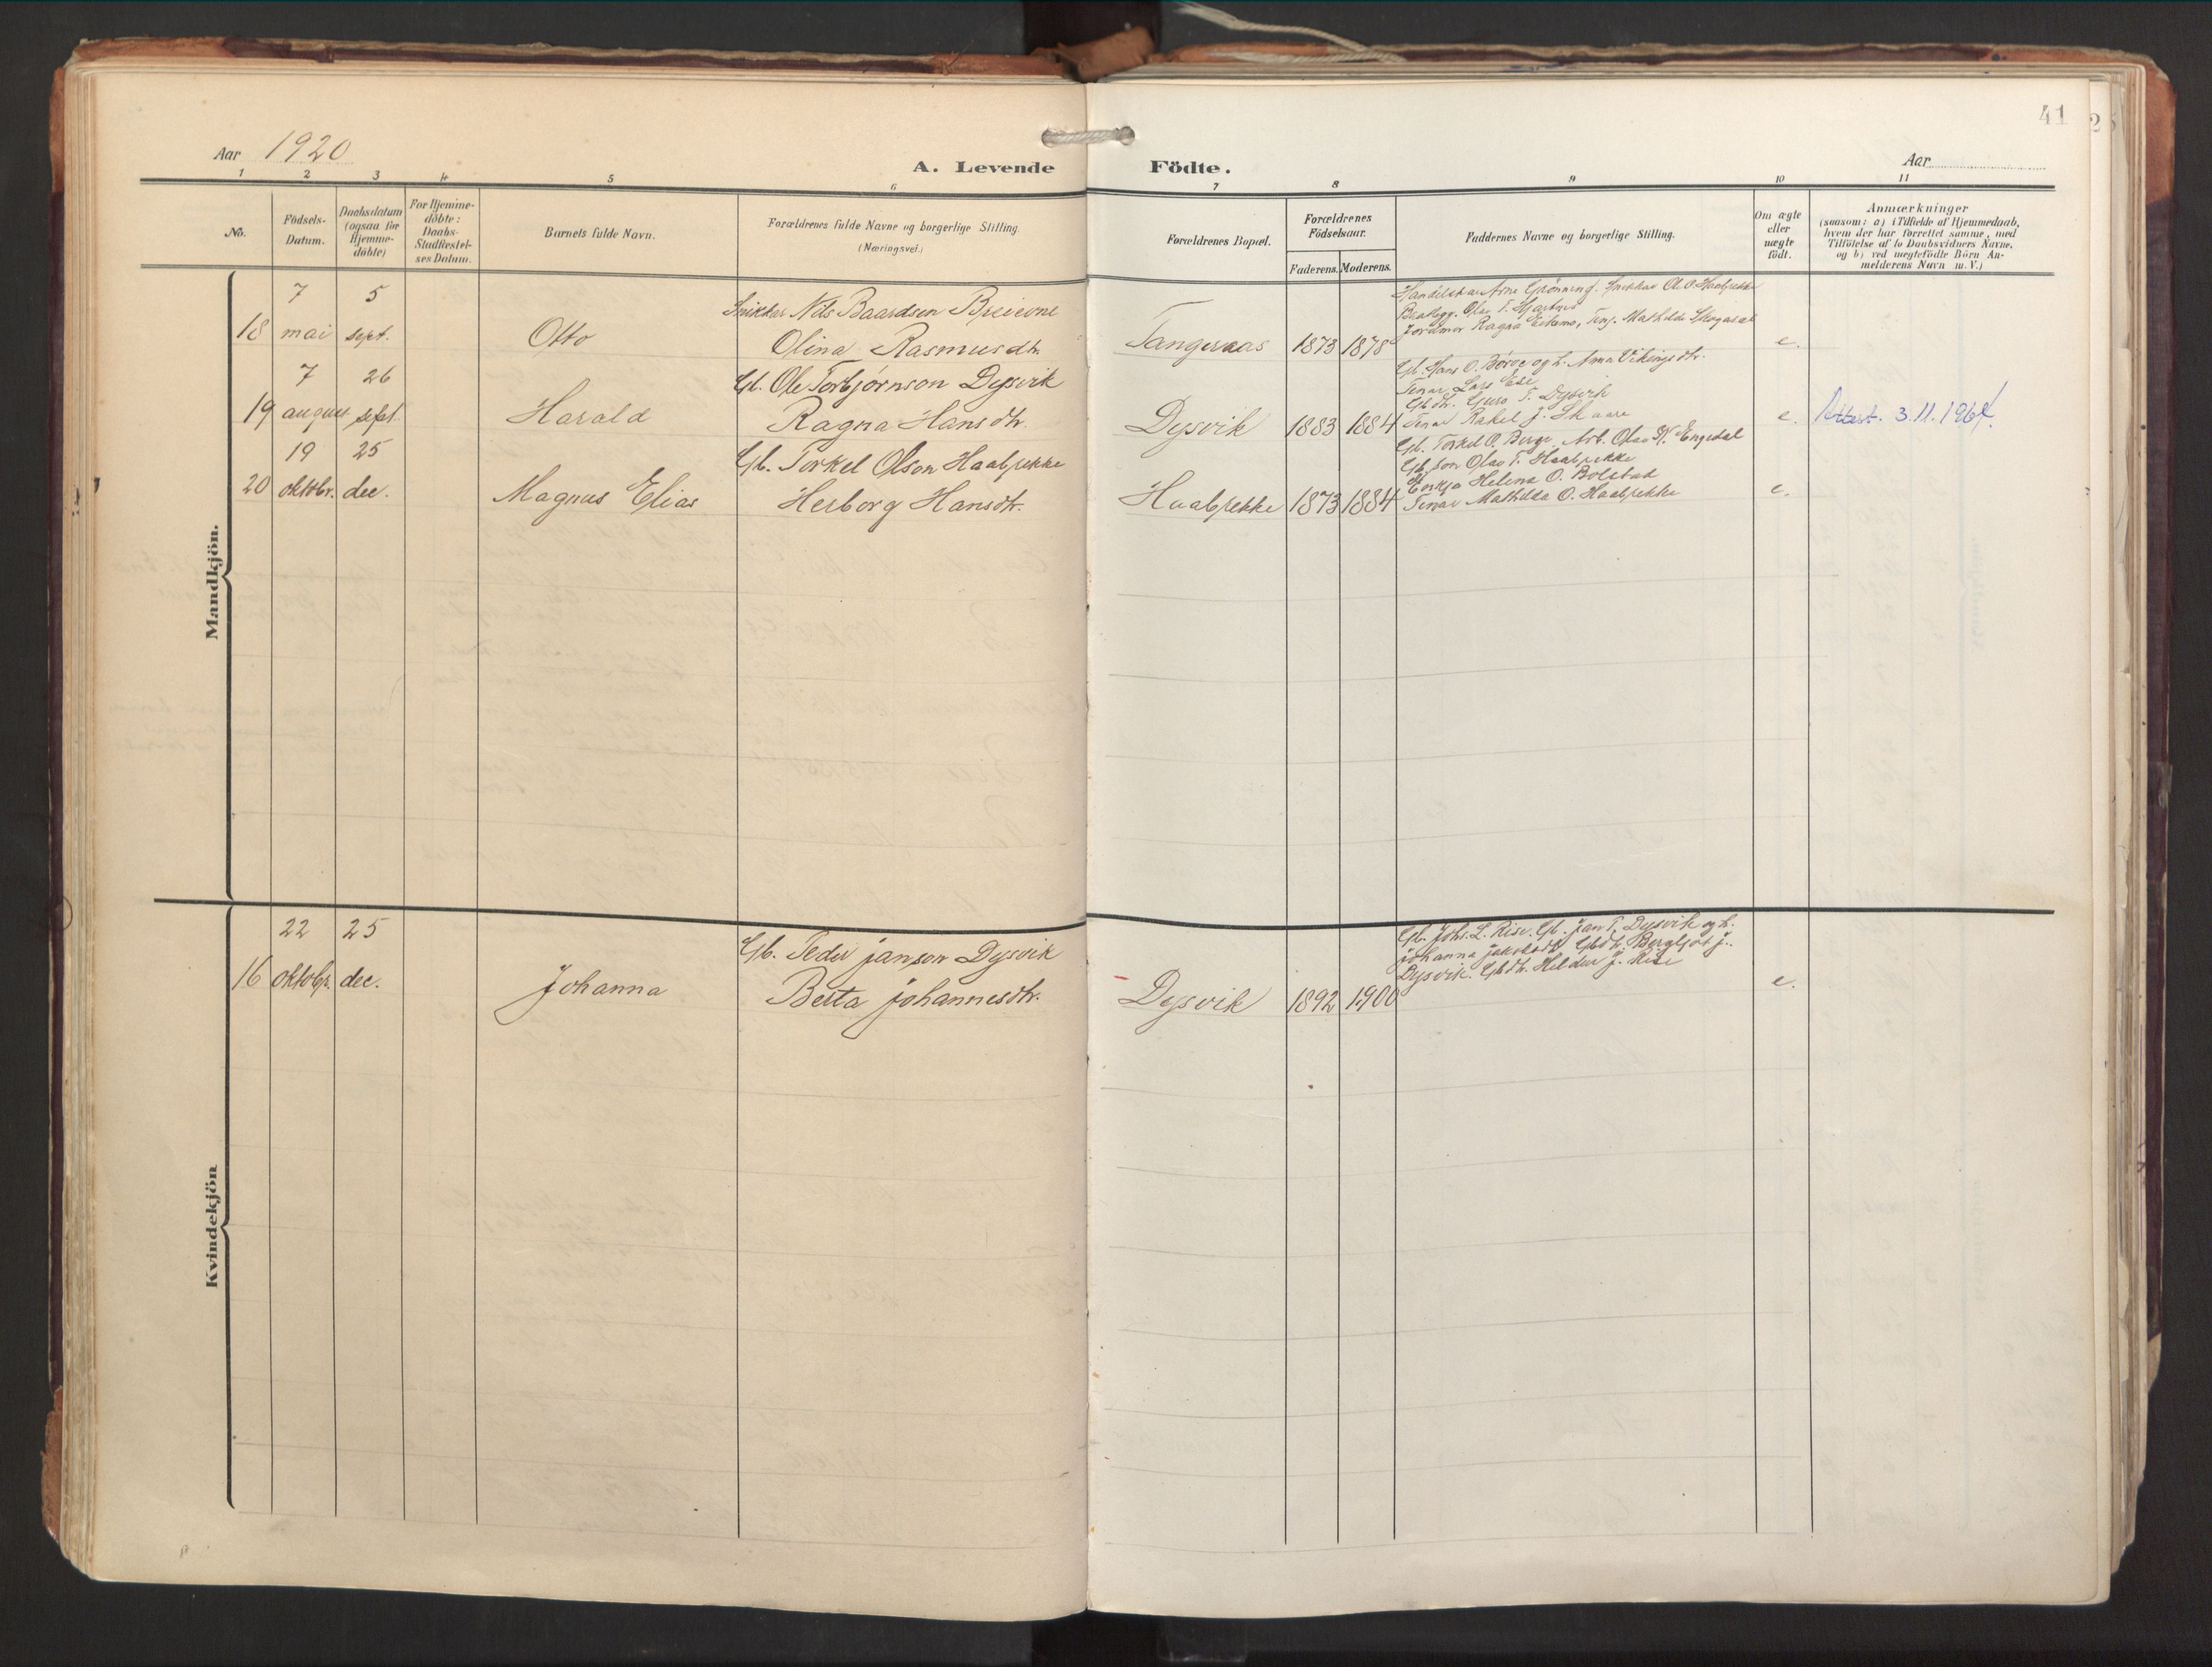 41
Aar 1920
A. Levende Födte.
Aar
1 2 3 4 5 6 7 8 9 10 11
No.
Födsels-
Datum.
Daabsdatum
(ogsaa for
Hjemme-
döbte)
For Hjemme-
döbte:
Daabs-
Stadfæstel-
ses Datum.
Barnets fulde Navn.
Forældrenes fulde Navne og borgerlige Stilling
(Næringsvei.)
Forældrenes Bopæl.
Forældrenes
Födselsaar.
Faderens. Moderens.
Faddernes Navne og borgerlige Stilling.
Om ægte
eller
uægte
födt.
Anmærkninger
(saasom: a) i Tilfælde af Hjemmedaab,
hvem der har forrettet samme, med
Tilföielse af to Daabsvidners Navne,
og b) ved uægtefödte Börn An-
melderens Navn m. V.)
Mandkjön.
18
7
mai
5
sept.
Otto
Snikkar Nils Baardsen Breievne
Olina Rasmusdtr.
Tangeraas
1873 1878
Handelskar Arne Grønning. Snikkar A. O. Haabjekke
Olav T.
Ragna Mathilde
e.
19
7
august
26
sept.
Harald
Gb. Ole Torbjørnson Dysvik
Ragna Hansdtr.
Dysvik
1883 1884
Gb. Hans O. Børve og h. Anna Vikingsdtr.
Tenar Lars Ese
Gbdtr. Guro T. Dysvik
Tenar Rakel J. Skaare
e.
Attest. 3.11.1964.
20
19
oktobr.
25
dec.
Magnus Elias
Gb. Torkel Olson Haabjekke
Herborg Hansdtr.
Haabjekke
1873 1884
Gb. Torkel O. Berge. Arb. Olav N. Engedal
Gb.son Olav T. Haabjekke
Helena O. Bolstad
Tenar Mathilda O. Haabjekke
e.
Kvindekjön
16
22
oktobr.
25
dec.
Johanna
Gb. Peder Janson Dysvik
Berta Johannesdtr.
Dysvik
1892 1900
Gb. Johs. L. Rise. Gb. Jan P. Dysvik og h.
Johanna Jakobsdtr. Gbdtr. Bergljot J.
Dysvik. Gbdtr. Hildur J. Rise
e.